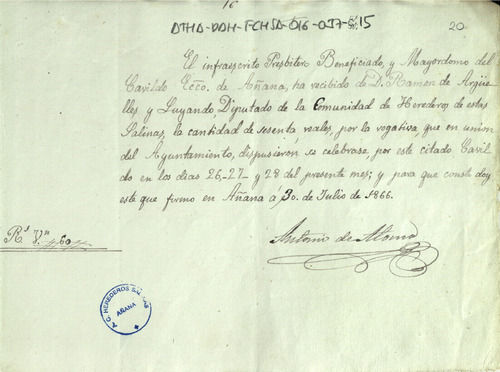 16
ATHA-DDH-FCHSA-016-037-15
20
El infraescrito Presbítero Beneficiado, y Mayordomo del
Cavildo Ecco. de Añana, ha recibido de D. Ramon de Argüe-
lles y Luyando, Diputado de la Comunidad de Herederos de estas
Salinas, la cantidad de sesenta reales, por la rogativa, que en union
del Ayuntamiento, dispusieron se celebrase, por este citado Cavil-
do en los dias 26,-27- y 28 del presente mes; y para que conste doy
este que firmo en Añana á 30. de Julio de 1866.
Antonio de
Rs. Vn. 60
A.C. HEREDEROS SALINAS
AÑANA